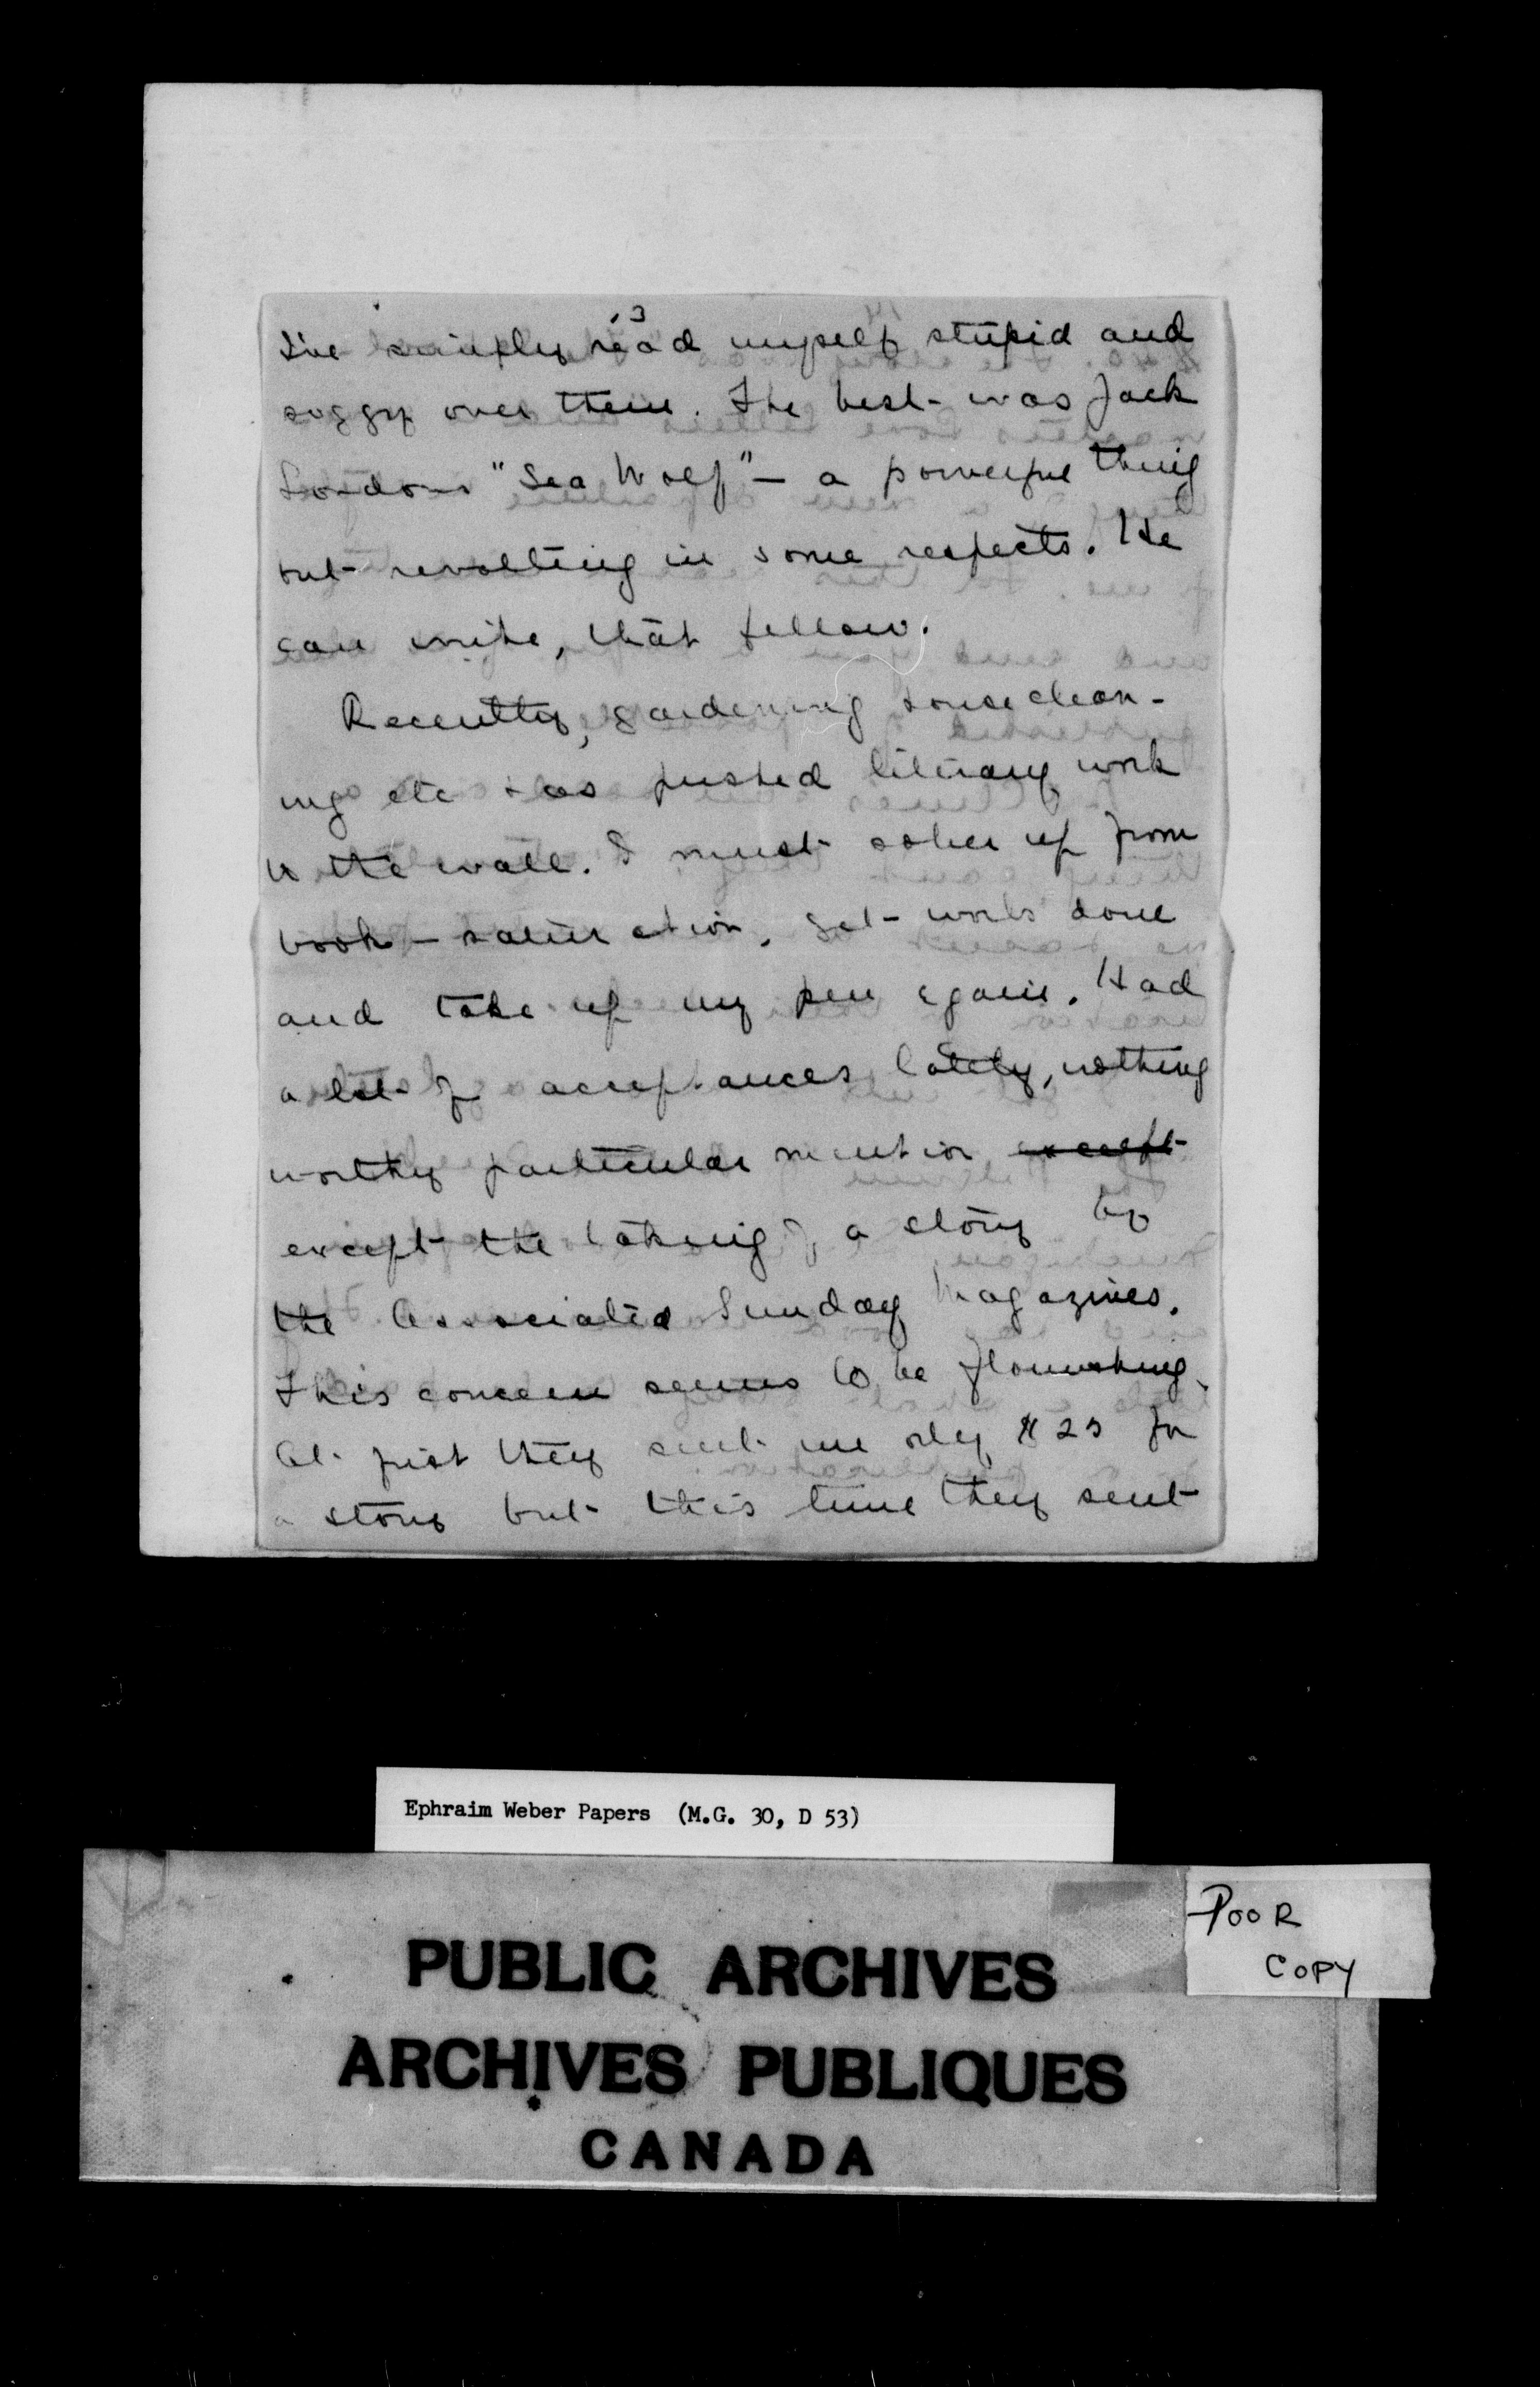 13
I've simply read myself stupid and
soggy over them. The best was Jack
London's "Sea Wolf" – a powerful thing
but revolting in some respects. He
can write, that fellow.
Recently, gardening houseclean-
ing etc has pushed literary work
to the wall. I must sober up from
book-saturation, get work done
and take up my pen again. Had
a lot of acceptances lately, nothing
worthy particular mention except
except the taking of a story by
the Associated Sunday Magazines.
This concern seems to be flourishing.
At first they sent me only $25 for
a story but this time they sent
Ephraim Weber Papers (M.G. 30, D 53)
POOR
COPY
PUBLIC ARCHIVES
ARCHIVES PUBLIQUES
CANADA